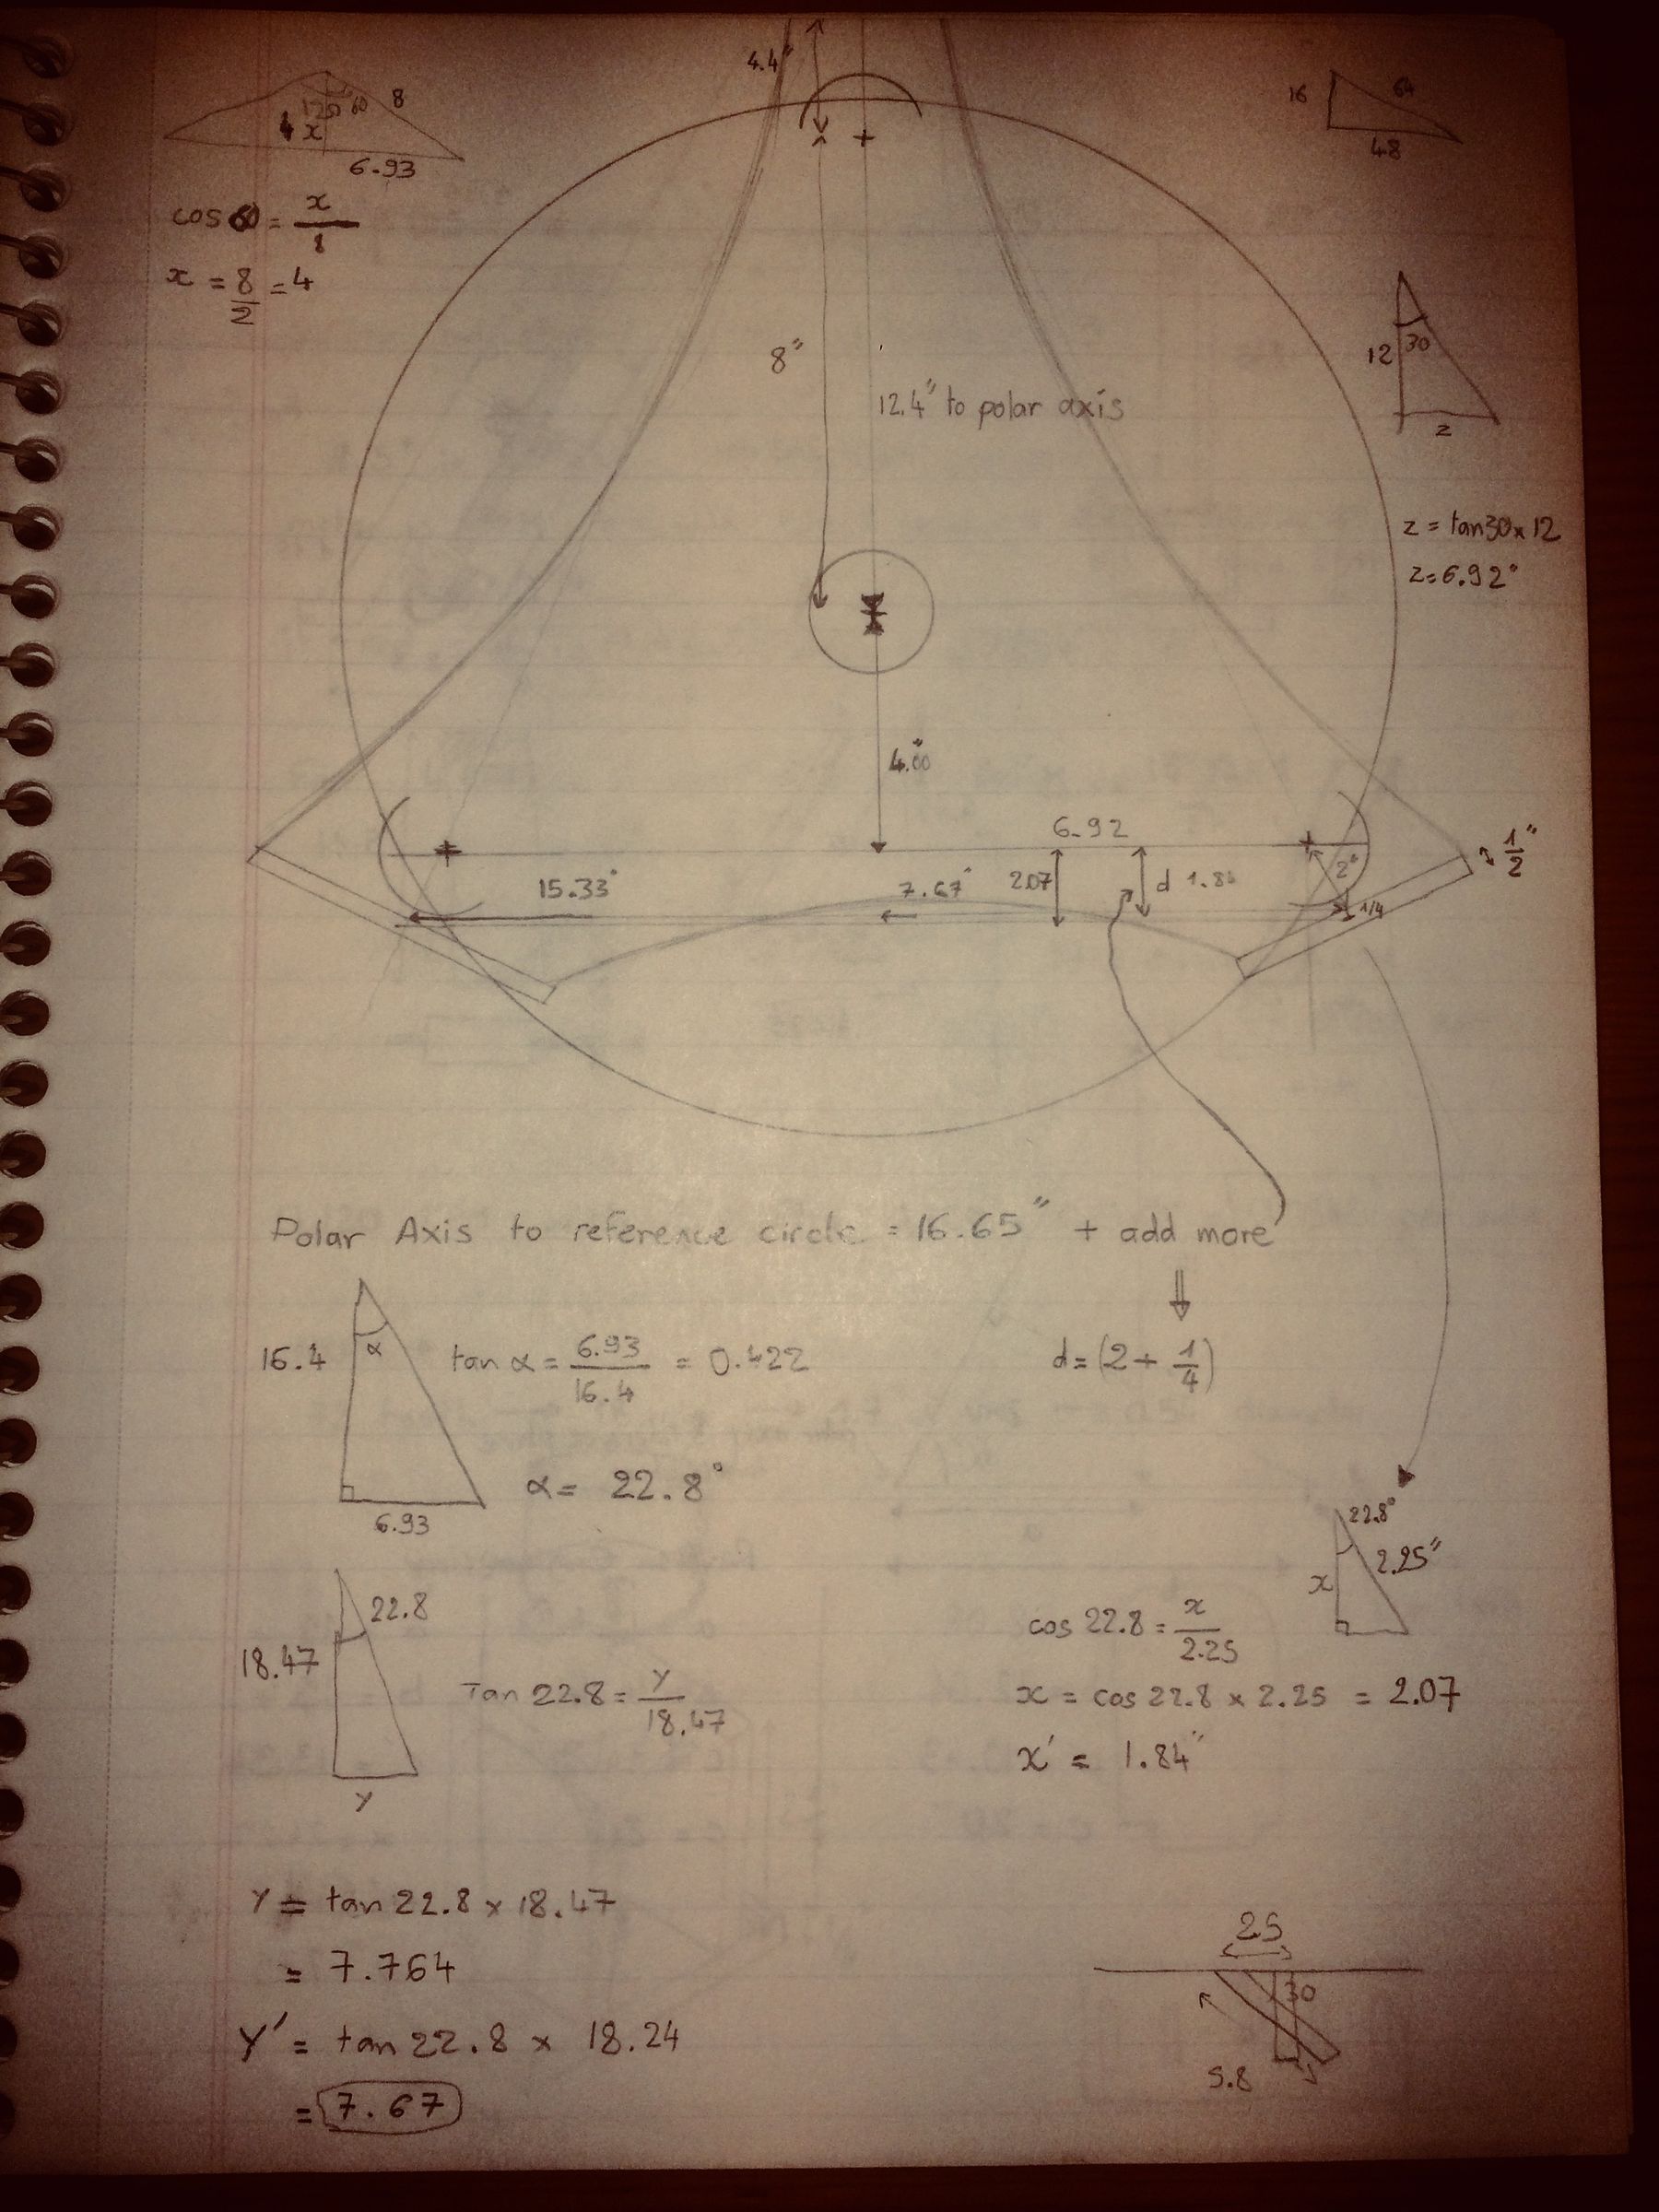 4.4"
120 60 8
x
6.93
16 64
48
cos 60 = x/8
x = 8/2 = 4
30
12
z
8"
12.4" to polar axis
z = tan30 x 12
z = 6.92"
4.00"
6.92
1/2"
2"
15.33"
7.67"
2.07
d
1/4
Polar Axis to reference circle = 16.65" + add more
16.4
α
tan α = 6.93/16.4 = 0.422
d = (2 + 1/4)
α = 22.8°
6.93
22.8°
2.25"
x
22.8
18.47
cos 22.8 = x/2.25
Tan 22.8 = y/18.47
x = cos 22.8 x 2.25 = 2.07
x' = 1.84"
y
y = tan 22.8 x 18.47
= 7.764
25
30
y' = tan 22.8 x 18.24
5.8
= 7.67